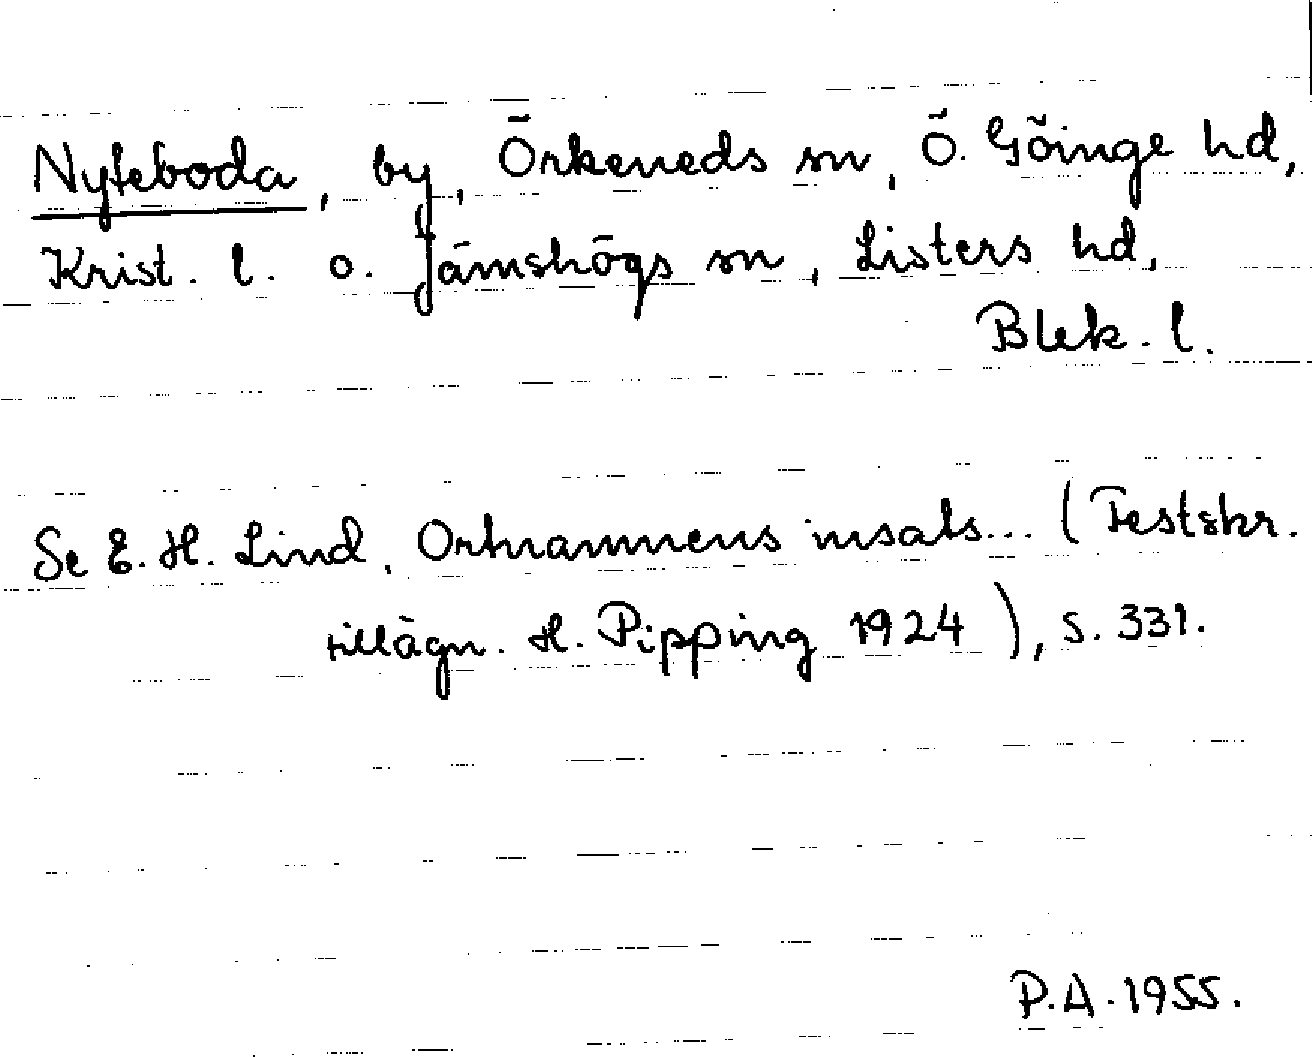 Nyteboda, by, Örkeneds sn, Ö. Göinge hd,
Krist. l. o. Jämshögs sn, Listers hd,
Blek. l.
Se E. H. Lind, Ortnamnens insats... (Festskr.
tillägn. H. Pipping 1924), s. 331.
P.A. 1955.